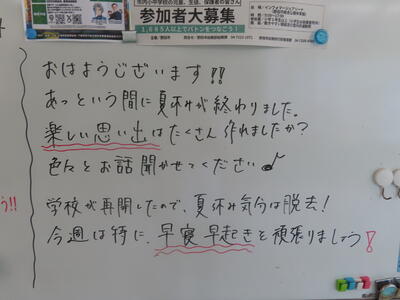 市内小中学校の児童、生徒、保護者の皆さん
参加者大募集
1,085人以上でバトンをつなごう!
おはようございます!!
あっという間に夏休みが終わりました。
楽しい思い出はたくさん作れましたか?
色々とお話聞かせてください♪
学校が再開したので、夏休み気分は脱去!
今週は特に、早寝早起きを頑張りましょう!
う!!